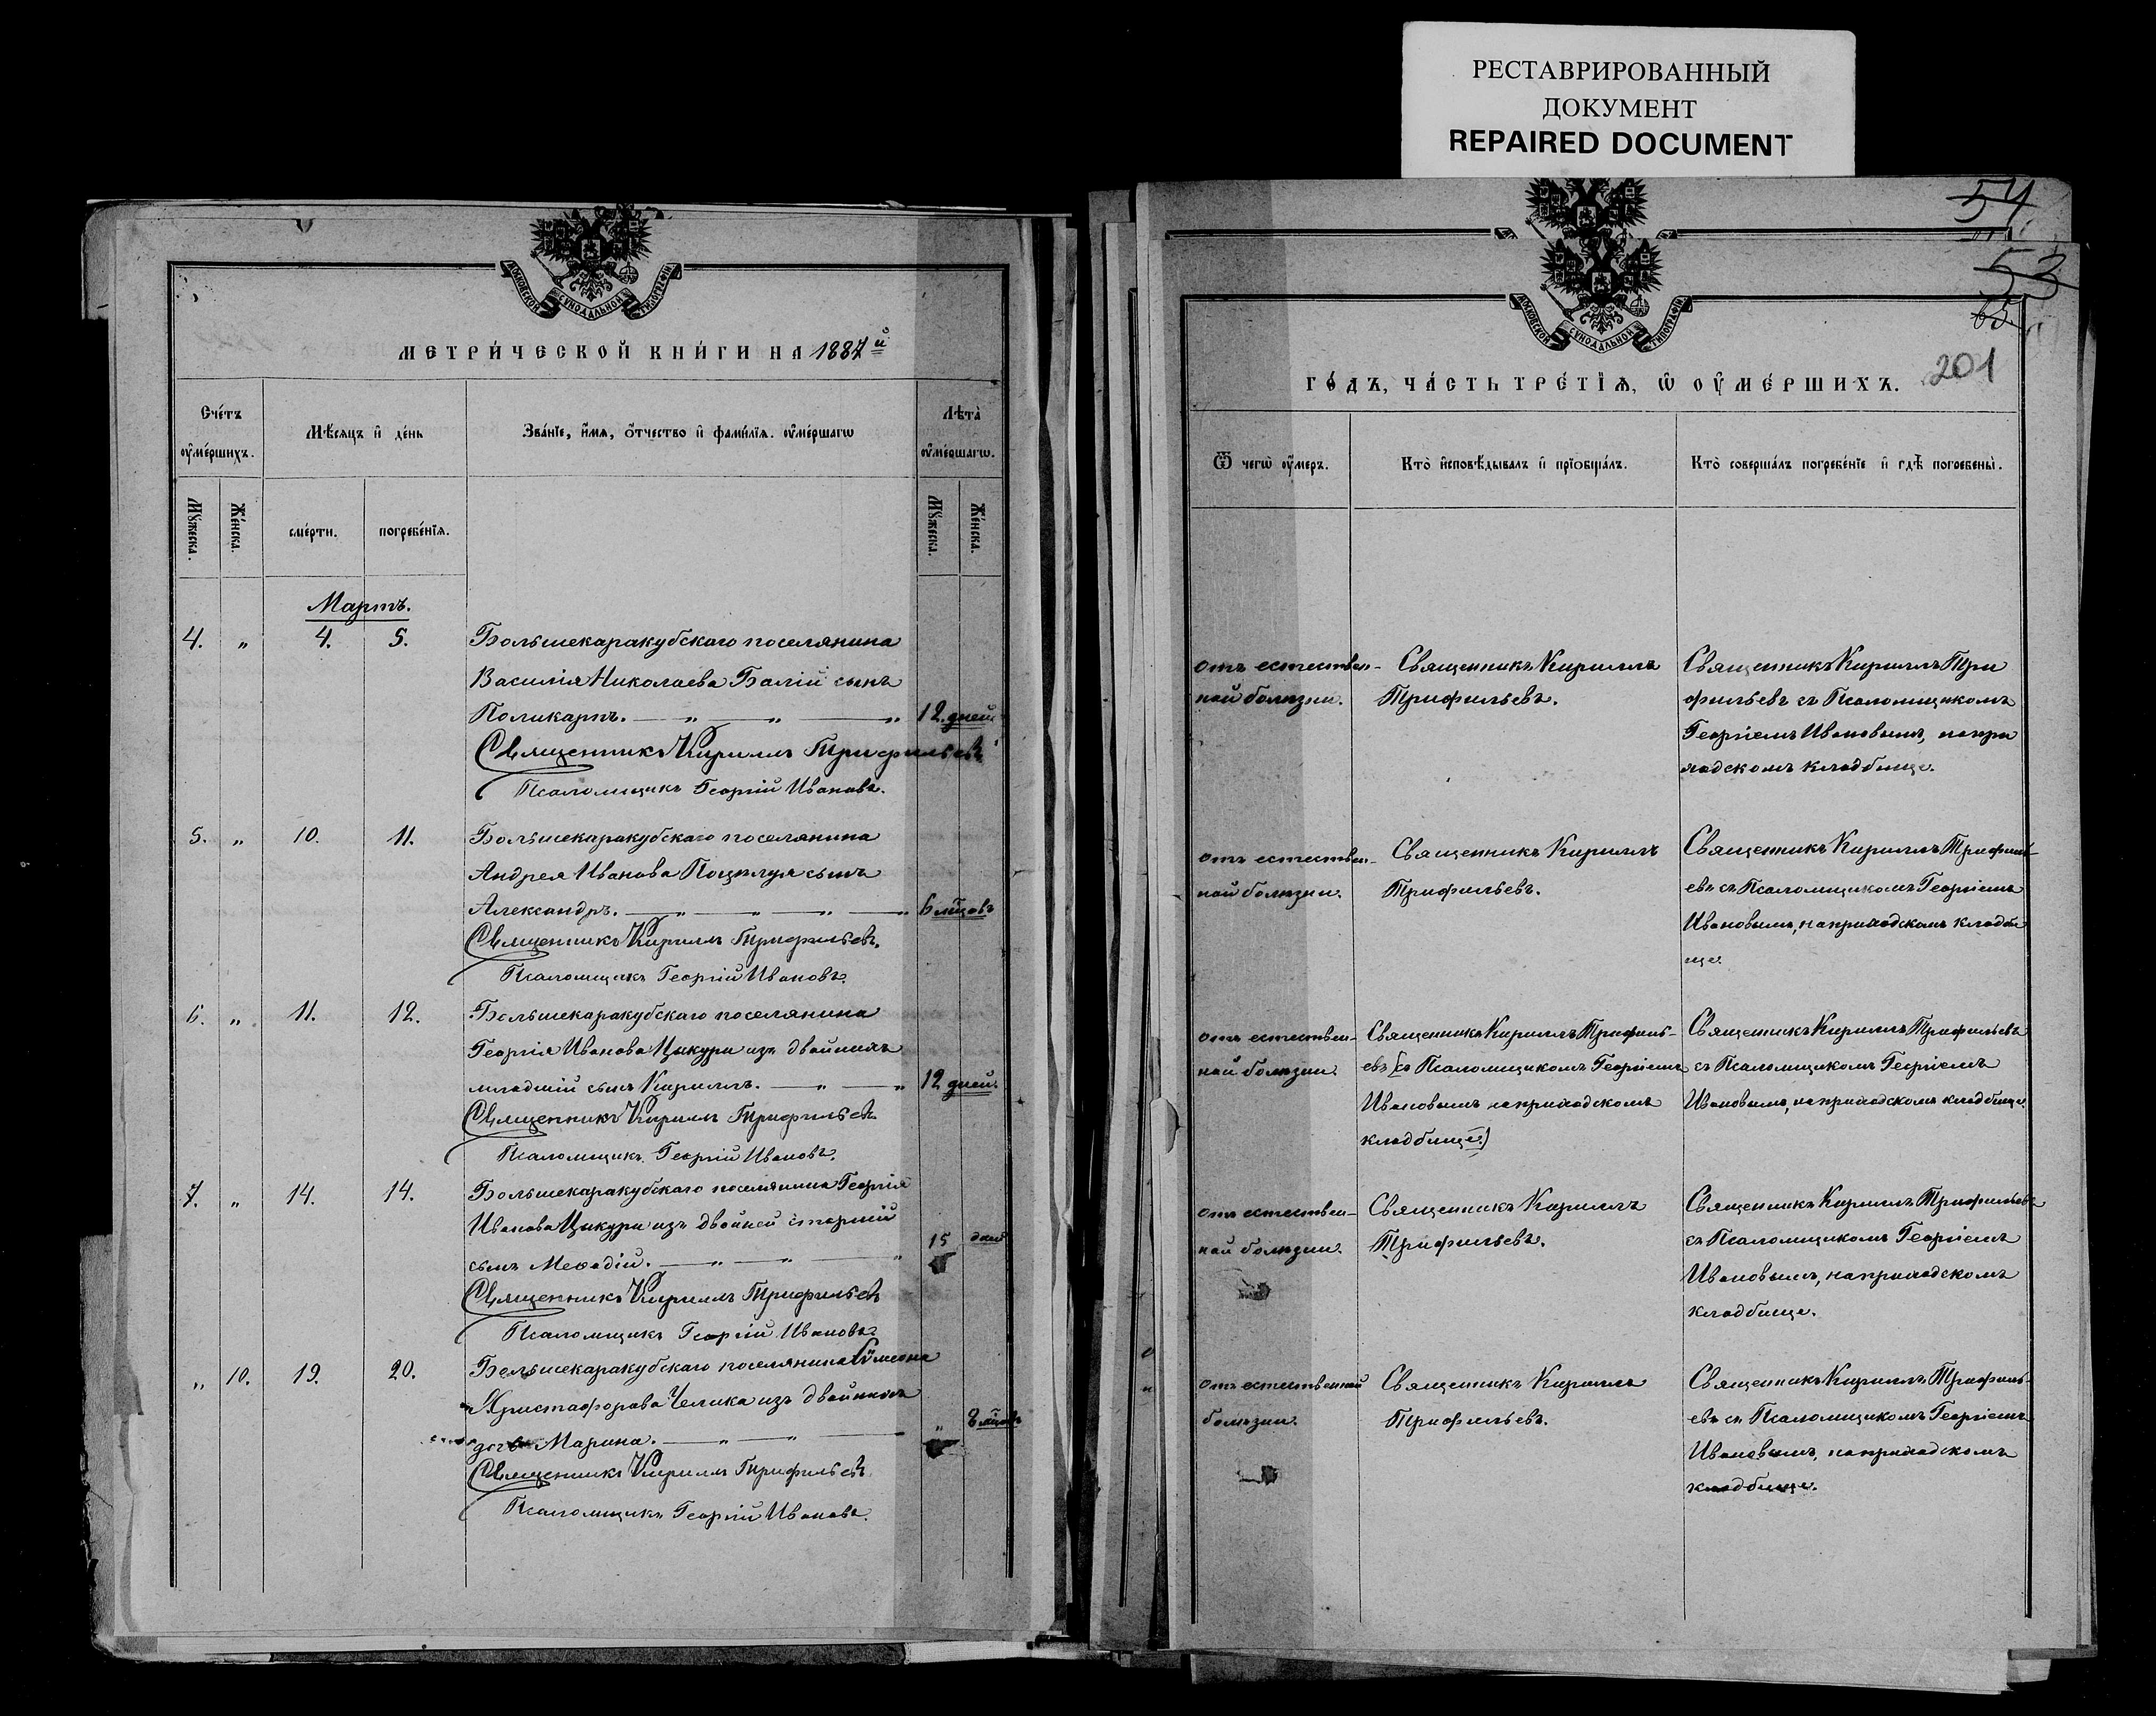 РЕСТАВРИРОВАННЫЙ
ДОКУМЕНТ
REPAIRED DOCUMENT
МОСКОВСКОЙ СѴНОДАЛЬНОЙ ТИПОГРАФІИ
МЕТРИ́ЧЕСКОЙ КНИ́ГИ НА 1887й
Сче́тъ ᲂу҆ме́ршихъ.
Мѣ́сяцъ и҆ де́нь
Зва́нїе, и҆́мя, ѻ҆́тчество и҆ фами́лїя. ᲂу҆ме́ршагѡ
Лѣта̀ ᲂу҆ме́ршагѡ.
Мꙋ́жеска.
Же́нска.
сме́рти.
погребе́нїя.
Мꙋ́жеска.
Же́нска.
Мартъ.
4. " 4. 5. Большекаракубскаго поселянина
Василія Николаева Балій сынъ
Поликарпъ. — " — " — " 12 дней
Священникъ Кириллъ Трифильевъ
Псаломщикъ Георгій Ивановъ.
5. " 10. 11. Большекаракубскаго поселянина
Андрея Иванова Поцелуя сынъ
Александръ. — " — " — " — " 6 м-цовъ
Священникъ Кириллъ Трифильевъ.
Псаломщикъ Георгій Ивановъ.
6. " 11. 12. Большекаракубскаго поселянина
Георгія Иванова Цикури изъ двойнихъ
младшій сынъ Кириллъ. — " — " 12 дней.
Священникъ Кириллъ Трифильевъ.
Псаломщикъ Георгій Ивановъ.
7. " 14. 14. Большекаракубскаго поселянина Георгія
Иванова Цикури изъ двойней старшій
сынъ Меѳодій. — " — " — " 15 дней
Священникъ Кириллъ Трифильевъ
Псаломщикъ Георгій Ивановъ.
" 10. 19. 20. Большекаракубскаго поселянина Сѵмеона
Христофорова Челика изъ двойнихъ
дочь Марина. — " — " — " м-цовъ
Священникъ Кириллъ Трифильевъ.
Псаломщикъ Георгій Ивановъ.
54
53
65
201
МОСКОВСКОЙ СѴНОДАЛЬНОЙ ТИПОГРАФІИ
ГО́ДЪ, ЧА́СТЬ ТРЕ́ТЇѦ, Ѡ҆ ОУ҆МЕ́РШИХЪ.
Ѿ чегѡ̀ ᲂу҆́меръ.
Кто̀ и҆сповѣ́дывалъ и҆ прїобща́лъ.
Кто̀ соверша́лъ погребе́нїе и҆ гдѣ̀ погребены̀.
отъ естествен-
ной болѣзни.
Священникъ Кириллъ
Трифильевъ.
Священникъ Кириллъ Три
фильевъ съ Псаломщикомъ
Георгіемъ Ивановымъ, на при
ходскомъ кладбище.
отъ естествен-
ной болѣзни.
Священникъ Кириллъ
Трифильевъ.
Священникъ Кириллъ Трифиль-
евъ съ Псаломщикомъ Георгіемъ
Ивановымъ, на приходскомъ кладби
ще.
отъ естествен-
ной болѣзни.
Священникъ Кириллъ Трифиль-
евъ [съ Псаломщикомъ Георгіемъ
Ивановымъ на приходскомъ
кладбище.]
Священникъ Кириллъ Трифильевъ
съ Псаломщикомъ Георгіемъ
Ивановымъ, на приходскомъ кладбище.
отъ естествен-
ной болѣзни.
Священникъ Кириллъ
Трифильевъ.
Священникъ Кириллъ Трифильевъ
съ Псаломщикомъ Георгіемъ
Ивановымъ, на приходскомъ
кладбище.
отъ естественной
болѣзни.
Священникъ Кириллъ
Трифильевъ.
Священникъ Кириллъ Трифиль-
евъ съ Псаломщикомъ Георгіемъ
Ивановымъ, на приходскомъ
кладбище.